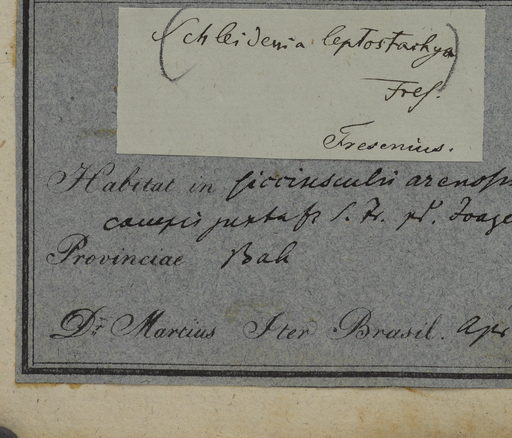 (Schleidenia leptostachya)
Fres.
Fresenius.
Habitat in sicciusculis arenosis
campis juxta fl S. Fr. pr.
Provinciae Bah
Dr. Martius Iter Brasil. Apr